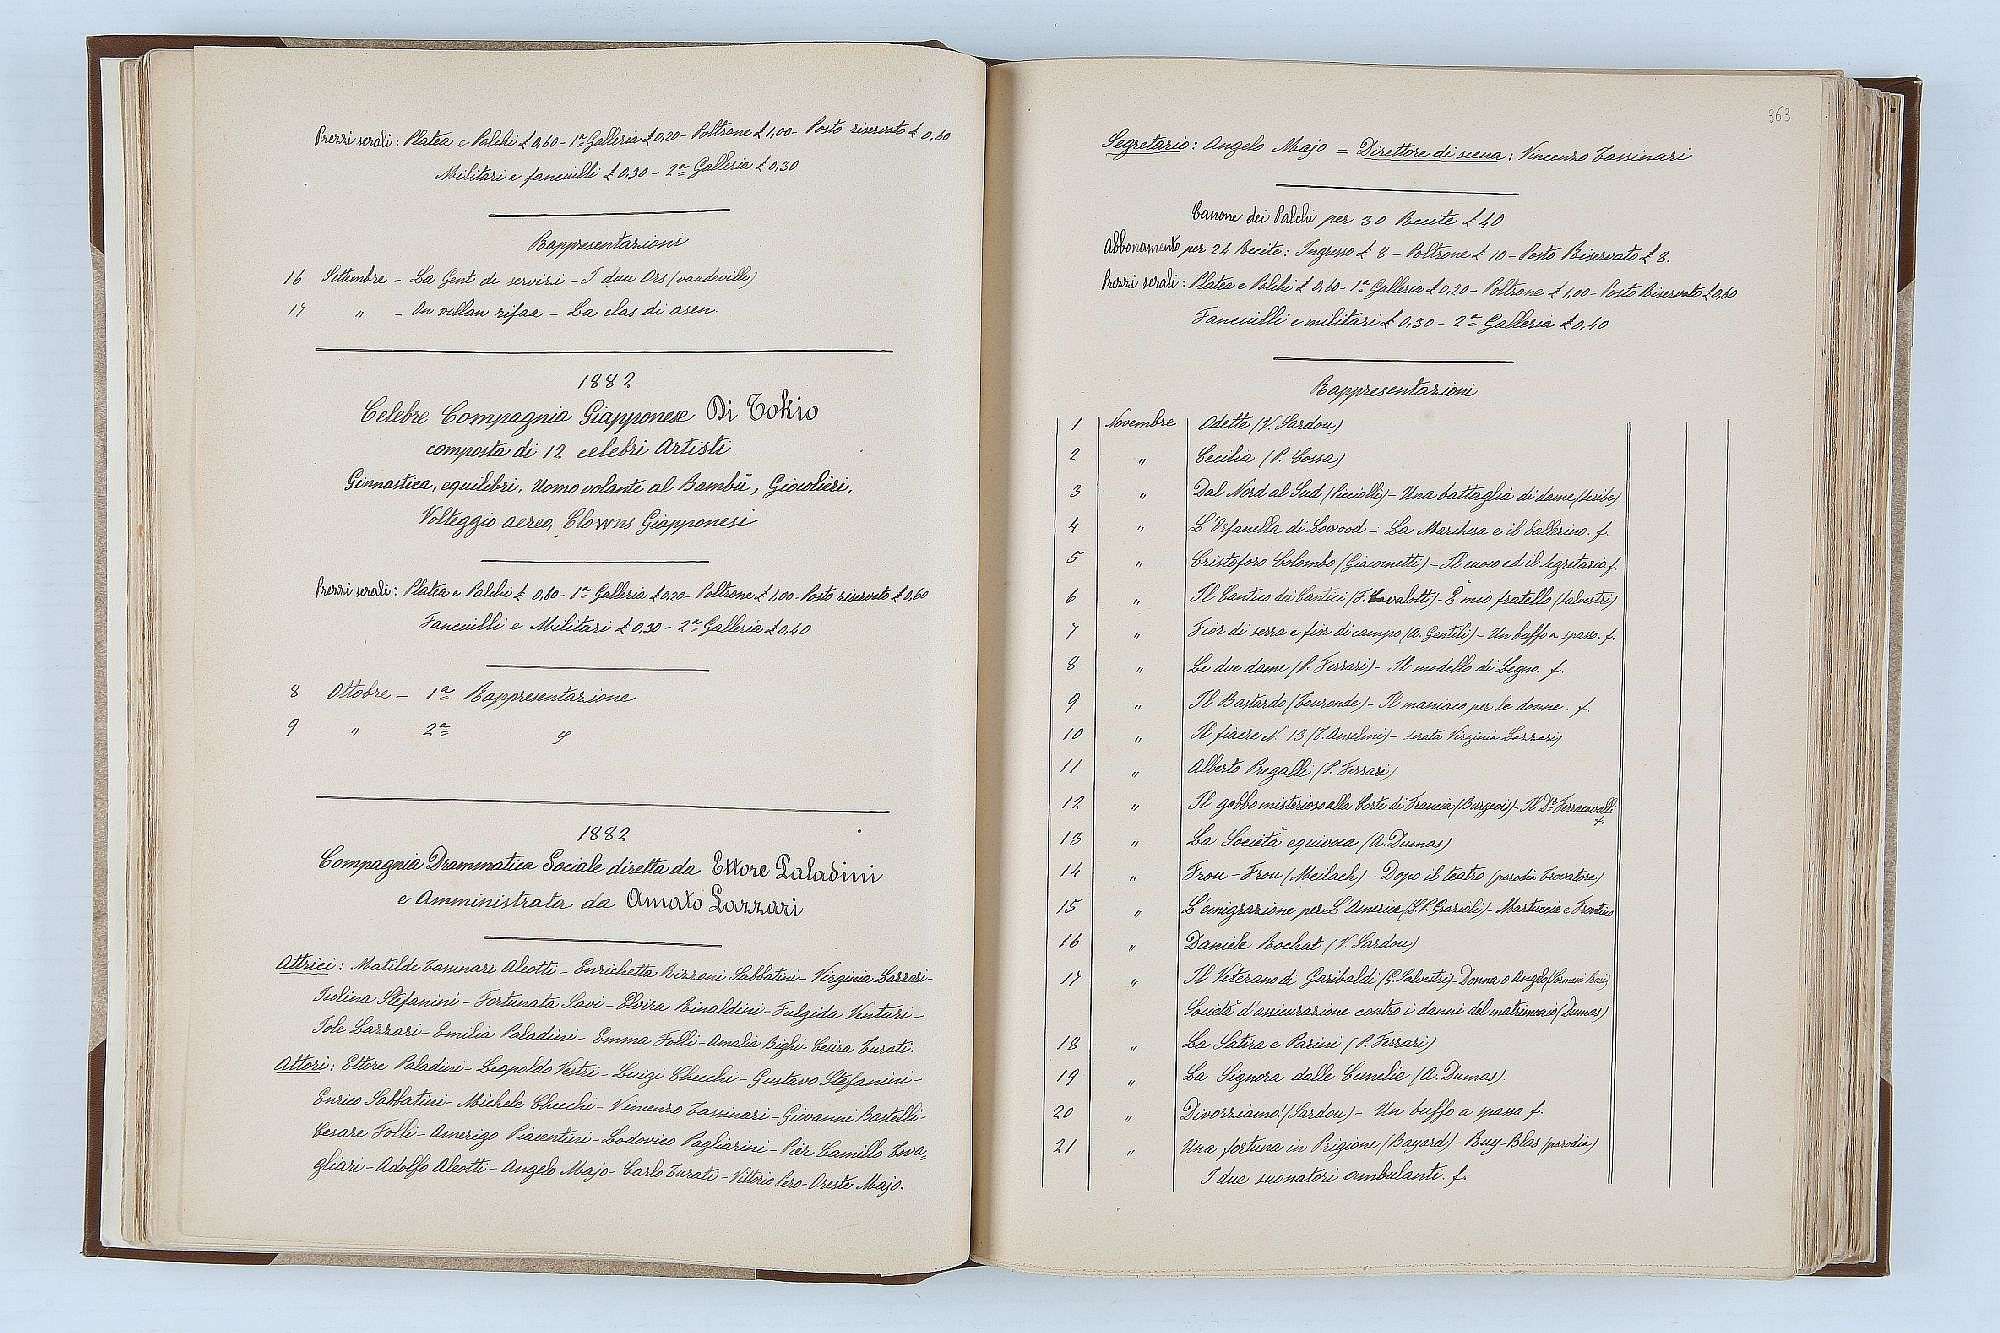 Prezzi serali: Platea e Palchi £ 0,60 - 1ª Galleria £ 0,20 - Poltrone £ 1,00 - Posto riservato £ 0,60
Militari e fanciulli £ 0,30 - 2ª Galleria £ 0,30
Rappresentazioni
16 Settembre - La Gent de servizi - I duu Ors (vaudeville)
17 " - On villan rifae - La clas di asen.
1882
Celebre Compagnia Giapponese Di Tokio
composta di 12 celebri Artisti
Ginnastica, equilibri, Uomo volante al Bambù, Giocolieri,
Volteggio aereo, Clowns Giapponesi
Prezzi serali: Platea e Palchi £ 0,60 - 1ª Galleria £ 0,20 - Poltrone £ 1,00 - Posto riservato £ 0,60
Fanciulli e Militari £ 0,30 - 2ª Galleria £ 0,40
8 Ottobre - 1ª Rappresentazione
9 " 2ª
1882
Compagnia Drammatica Sociale diretta da Ettore Paladini
e Amministrata da Amato Lazzari
Attrici: Matilde Tassinari Aleotti - Enrichetta Bizzoni Sabbatini - Virginia Lazzari -
Isolina Stefanini - Fortunata Savi - Elvira Rinaldini - Fulgida Venturi -
Iole Lazzari - Emilia Paladini - Emma Folli - Amalia Bighi - Cesira Turati.
Attori: Ettore Paladini - Leopoldo Vestri - Luigi Checchi - Gustavo Stefanini -
Enrico Sabbatini - Michele Checchi - Vincenzo Tassinari - Giovanni Bartelli -
Cesare Folli - Amerigo Piacentini - Lodovico Pagliarini - Pier Camillo Tova-
gliari - Adolfo Aleotti - Angelo Majo - Carlo Turati - Vittorio Pero - Oreste Majo.
363
Segretario: Angelo Majo = Direttore di scena: Vincenzo Tassinari
Canone dei Palchi per 30 Recite £ 40
Abbonamento per 24 Recite: Ingresso £ 8 - Poltrone £ 10 - Posto Riservato £ 8.
Prezzi serali: Platea e Palchi £ 0,60 - 1ª Galleria £ 0,20 - Poltrone £ 1,00 - Posto Riservato £ 0,60
Fanciulli e militari £ 0,30 - 2ª Galleria £ 0,40
Rappresentazioni
1 Novembre Odette (V. Sardou)
2 " Cecilia (P. Cossa)
3 " Dal Nord al Sud (Picciolli) - Una battaglia di dame (Scribe)
4 " L'Orfanella di Lowood - La Marchesa e il ballerino. f.
5 " Cristoforo Colombo (Giacometti) - Il cuoco ed il segretario f.
6 " Il Cantico dei Cantici (F. Cavalotti) - È mio fratello (Salvestri)
7 " Fior di serra e fior di campo (A. Gentili) - Un buffo a spasso. f.
8 " Le due dame (P. Ferrari) - Il modello di Legno. f.
9 " Il Bastardo (Touronde) - Il maniaco per le donne. f.
10 " Il fiacre N. 13 (T. Anselmi) - serata Virginia Lazzari)
11 " Alberto Pregalli (P. Ferrari)
12 " Il gobbo misterioso alla Corte di Francia (Burgeois) - Il Dr Ferracavalli
f.
13 " La Società equivoca (A. Dumas)
14 " Frou - Frou (Meilach) Dopo il teatro (parodia Trovatore)
15 " L'emigrazione per L'America (G. P. Grazioli) - Martuccia e Frontino
16 " Daniele Rochat (V. Sardou)
17 " Il Veterano di Garibaldi (G. Salvestri) - Donna o Angelo
Società d'assicurazione contro i danni del matrimonio (Dumas)
18 " La Satira e Parini (P. Ferrari)
19 " La Signora dalle Camelie (A. Dumas)
20 " Divorziamo! (Sardou) - Un buffo a spasso f.
21 " Una fortuna in Prigione (Bayard) Ruy-Blas (parodia)
I due suonatori ambulanti. f.